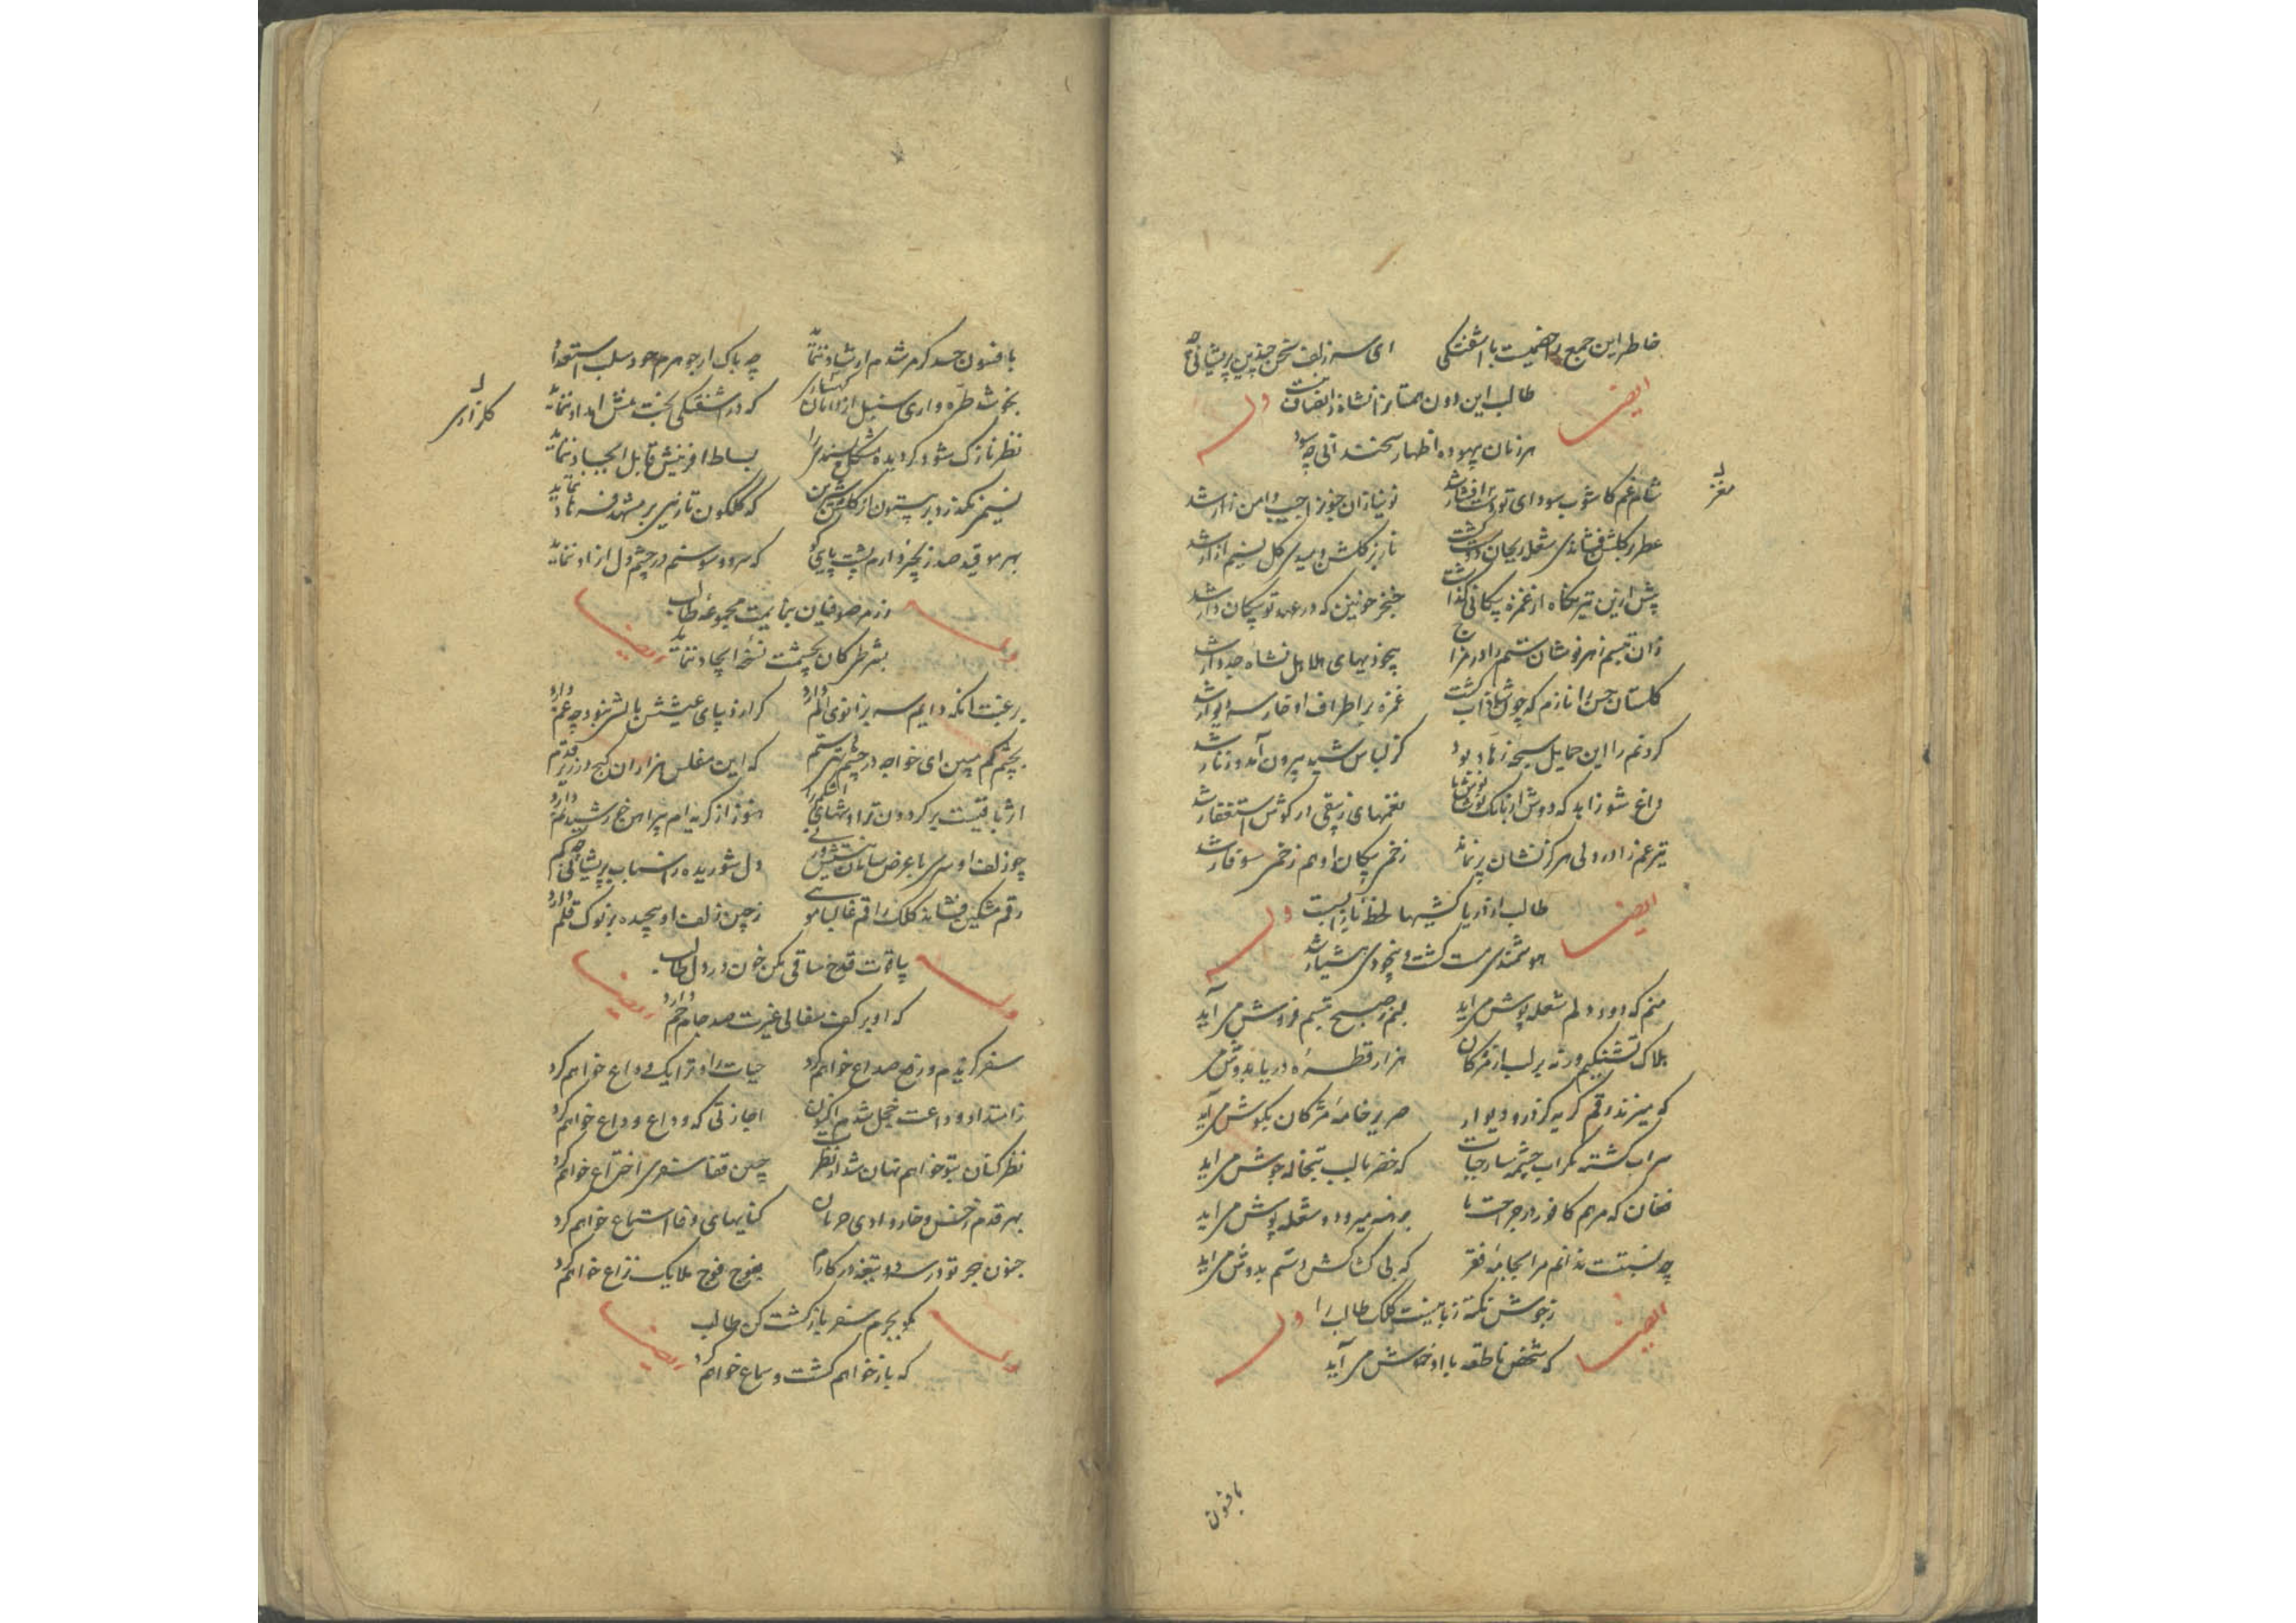 خاطر این جمع را ضمیمت با اشفتکی ای سر زلف سخن چندین پریشانی چه
ایضا
طالب این دون همتانرا نشاة انصاف نیست
وله
هر زمان بیهوده اظهار سخندانی چه سود
شام غم کاشوب سودای تو
نو نیازان جنونرا جیب و دامن زار شد
عطر بر کلشن فشاندی شعله ریحان دوست کشت
ناز بر کلشن دمیدی کل نسیم ازار شد
پیش ازین تیر نکاه از غمزه پیکانی نداشت
خنجر خونین که در عهد تو پیکان دار شد
زان تبسم زهر نوشان ستم را در مزاج
بیخودیهای هلاهل نشاه جدوار شد
کلستان حسن را نازم که چون شاداب کشت
غمزه بر اطراف او خار سر دیوار شد
کردنم را این حمایل سبحه زهاد بود
کز لباس شید بیرون آمد و زنار شد
داغ شو زاهد که دوش از بانک نوشانوش ما
نغمهای زیبقی در کوش استغفار شد
تیر غم زاد در دلی هرکز نشان پر نماند
زخم پیکان او هم زخم سوفار شد
ایضا
طالب از دریا کشیها لحظه باز ایست
وله
هوشمندی مست کشت و بیخودی هشیار شد
منم که دود دلم شعله پوش می اید
غم ز صبح تبسم فروش می آید
هلاک تشنکیم ورنه بر لب از مژکان
هزار قطره دریا بدوش می
که میزند رقم کریه کز در و دیوار
صریر خامه مژکان بکوش می آید
سراب کشته مکر آب چشمه سار حیات
که خضر با لب تبخاله جوش می اید
فغان که مرهم کافور از جراحت ما
برهنه میرود و شعله پوش می اید
چه نسبتست ندانم مرا بجامه فقر
که بی کشاکش دستم بدوش می اید
ایضا
ز جوش نکته زبانیست کلک طالب را
وله
که شخص ناطقه با او خموش می آید
بافسون
بافسون حسد کر مرشدم ارشاد ننماید
چه باک از جوهرم خود سلب استعداد
بخوشه طره واری سنبل از دامان کهسارم
که در اشفتکی بخت منش امداد ننماید
کلزاری
نظر نازک شود کر دیده مشکل پسندی را
بساط افرینش قابل ایجاد ننماید
نسیمی نکذرد بر بیستون از کلشن شیرین
که کلکون تازیی بر مشهد فرهاد ننماید
بهر مو قید صد زنجیر دارم پشت پایی کو
که سرو و سوسنم در چشم دل ازاد ننماید
رزم صوفیان بنمایمت مجموعه طالب
وله ایضا
بشرط کان بچشمت نسخه ایجاد ننماید
بر غبت انکه دایم سر بزانوی الم دارد
کر از دیبای عیشش بالشی نبود چه غم دارد
بچشم کم مبین ای خواجه در چشم تهی دستم
که این مفلس هزاران کنج در زیر قدم
اثر باقیست بر کردون ترا و شهای اشکم را
هنوز از کریه ام پیراهن خورشید نم دارد
چو زلف او سری با عرض سامان نیستش ورنی
دل شوریده در اسباب پریشانی چه کم
رقم مشکین فشاند کلک راقم غالبا مویی
ز چین زلف او پیچیده بر نوک قلم دارد
بیاقوت قدح ساقی مکن خون در دل طالب
وله ایضا
که او بر کف سفالی غیرت صد جام جم دارد
سفر کزیدم و رفع صداع خواهم کرد
حیات را و ترا یک وداع خواهم کرد
ز امتداد وداعت خجل شدم اکنون
اجازتی که وداع وداع خواهم کرد
نظر کنان بتو خواهم نهان شد از نظرت
چنین قفا سفری اختراع خواهم کرد
بهر قدم ز خس و خار وادی حرمان
کنایهای وفا استماع خواهم کرد
جنون هجر تو در سر دو تیغه در کارم
بفوج فوج ملایک نزاع خواهم کرد
مکو بجرم سفر بازکشت کن طالب
وله ایضا
که باز خواهم کشت و سماع خواهم کرد